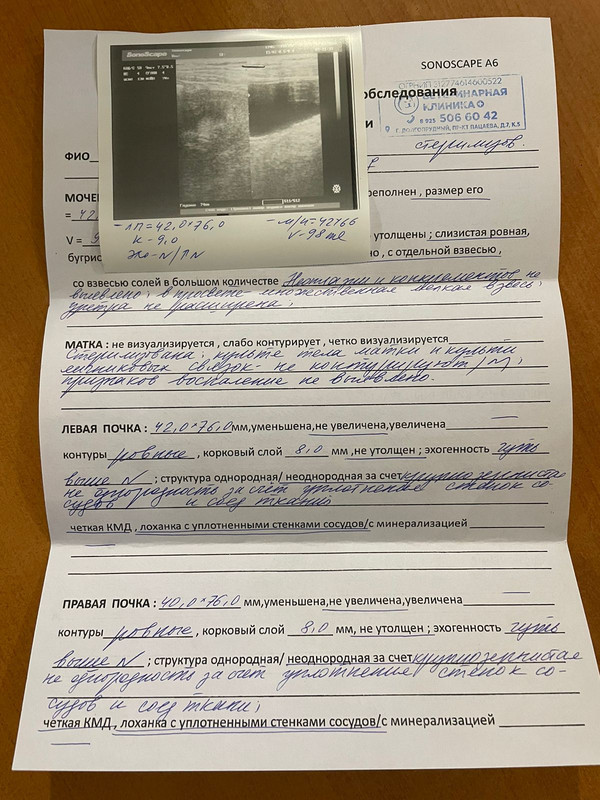 SonoScape
SONOSCAPE A6
обследования
ОГРНИП 312774614600522
ВЕТЕРИНАРНАЯ
КЛИНИКА
8 925 506 60 42
Г. ДОЛГОПРУДНЫЙ, ПР-КТ ПАЦАЕВА, Д.7, К.5
ФИО
стерилизов.
МОЧЕ
реполнен , размер его
- ЛП=42,0×76,0
К-9,0
Эхо-N/ПN
V-98 ml
= 42
V = 9
утолщены ; слизистая ровная,
бугрис
но , с отдельной взвесью ,
со взвесью солей в большом количестве Неоплазии и конкрементов не
выявлено; в просвете- множественная мелкая взвесь;
уретра не расширена;
МАТКА : не визуализируется , слабо контурирует , четко визуализируется
Стерилизована; культе тела матки и культи
яичниковых связок- не контурируют/N;
признаков воспаление не выявлено.
ЛЕВАЯ ПОЧКА : 42,0×76,0 мм,уменьшена,не увеличена,увеличена
контуры ровные , корковый слой 8,0 мм ,не утолщен ; эхогенность чуть
выше N ; структура однородная/ неоднородная за счет крупнозернистая
не однородность за счет уплотнение стенок со-
судов и соед ткани;
четкая КМД , лоханка с уплотненными стенками сосудов/с минерализацией
ПРАВАЯ ПОЧКА : 40,0×76,0 мм,уменьшена,не увеличена,увеличена
контуры ровные , корковый слой 8,0 мм, не утолщен ; эхогенность чуть
выше N ; структура однородная/ неоднородная за счет крупнозернистая
не однородность за счет уплотнение стенок со-
судов и соед ткани;
четкая КМД , лоханка с уплотненными стенками сосудов/с минерализацией